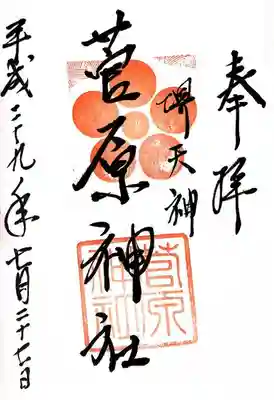 奉拝
堺天神
菅原神社
菅原
神社
平成二十九年七月二十六日